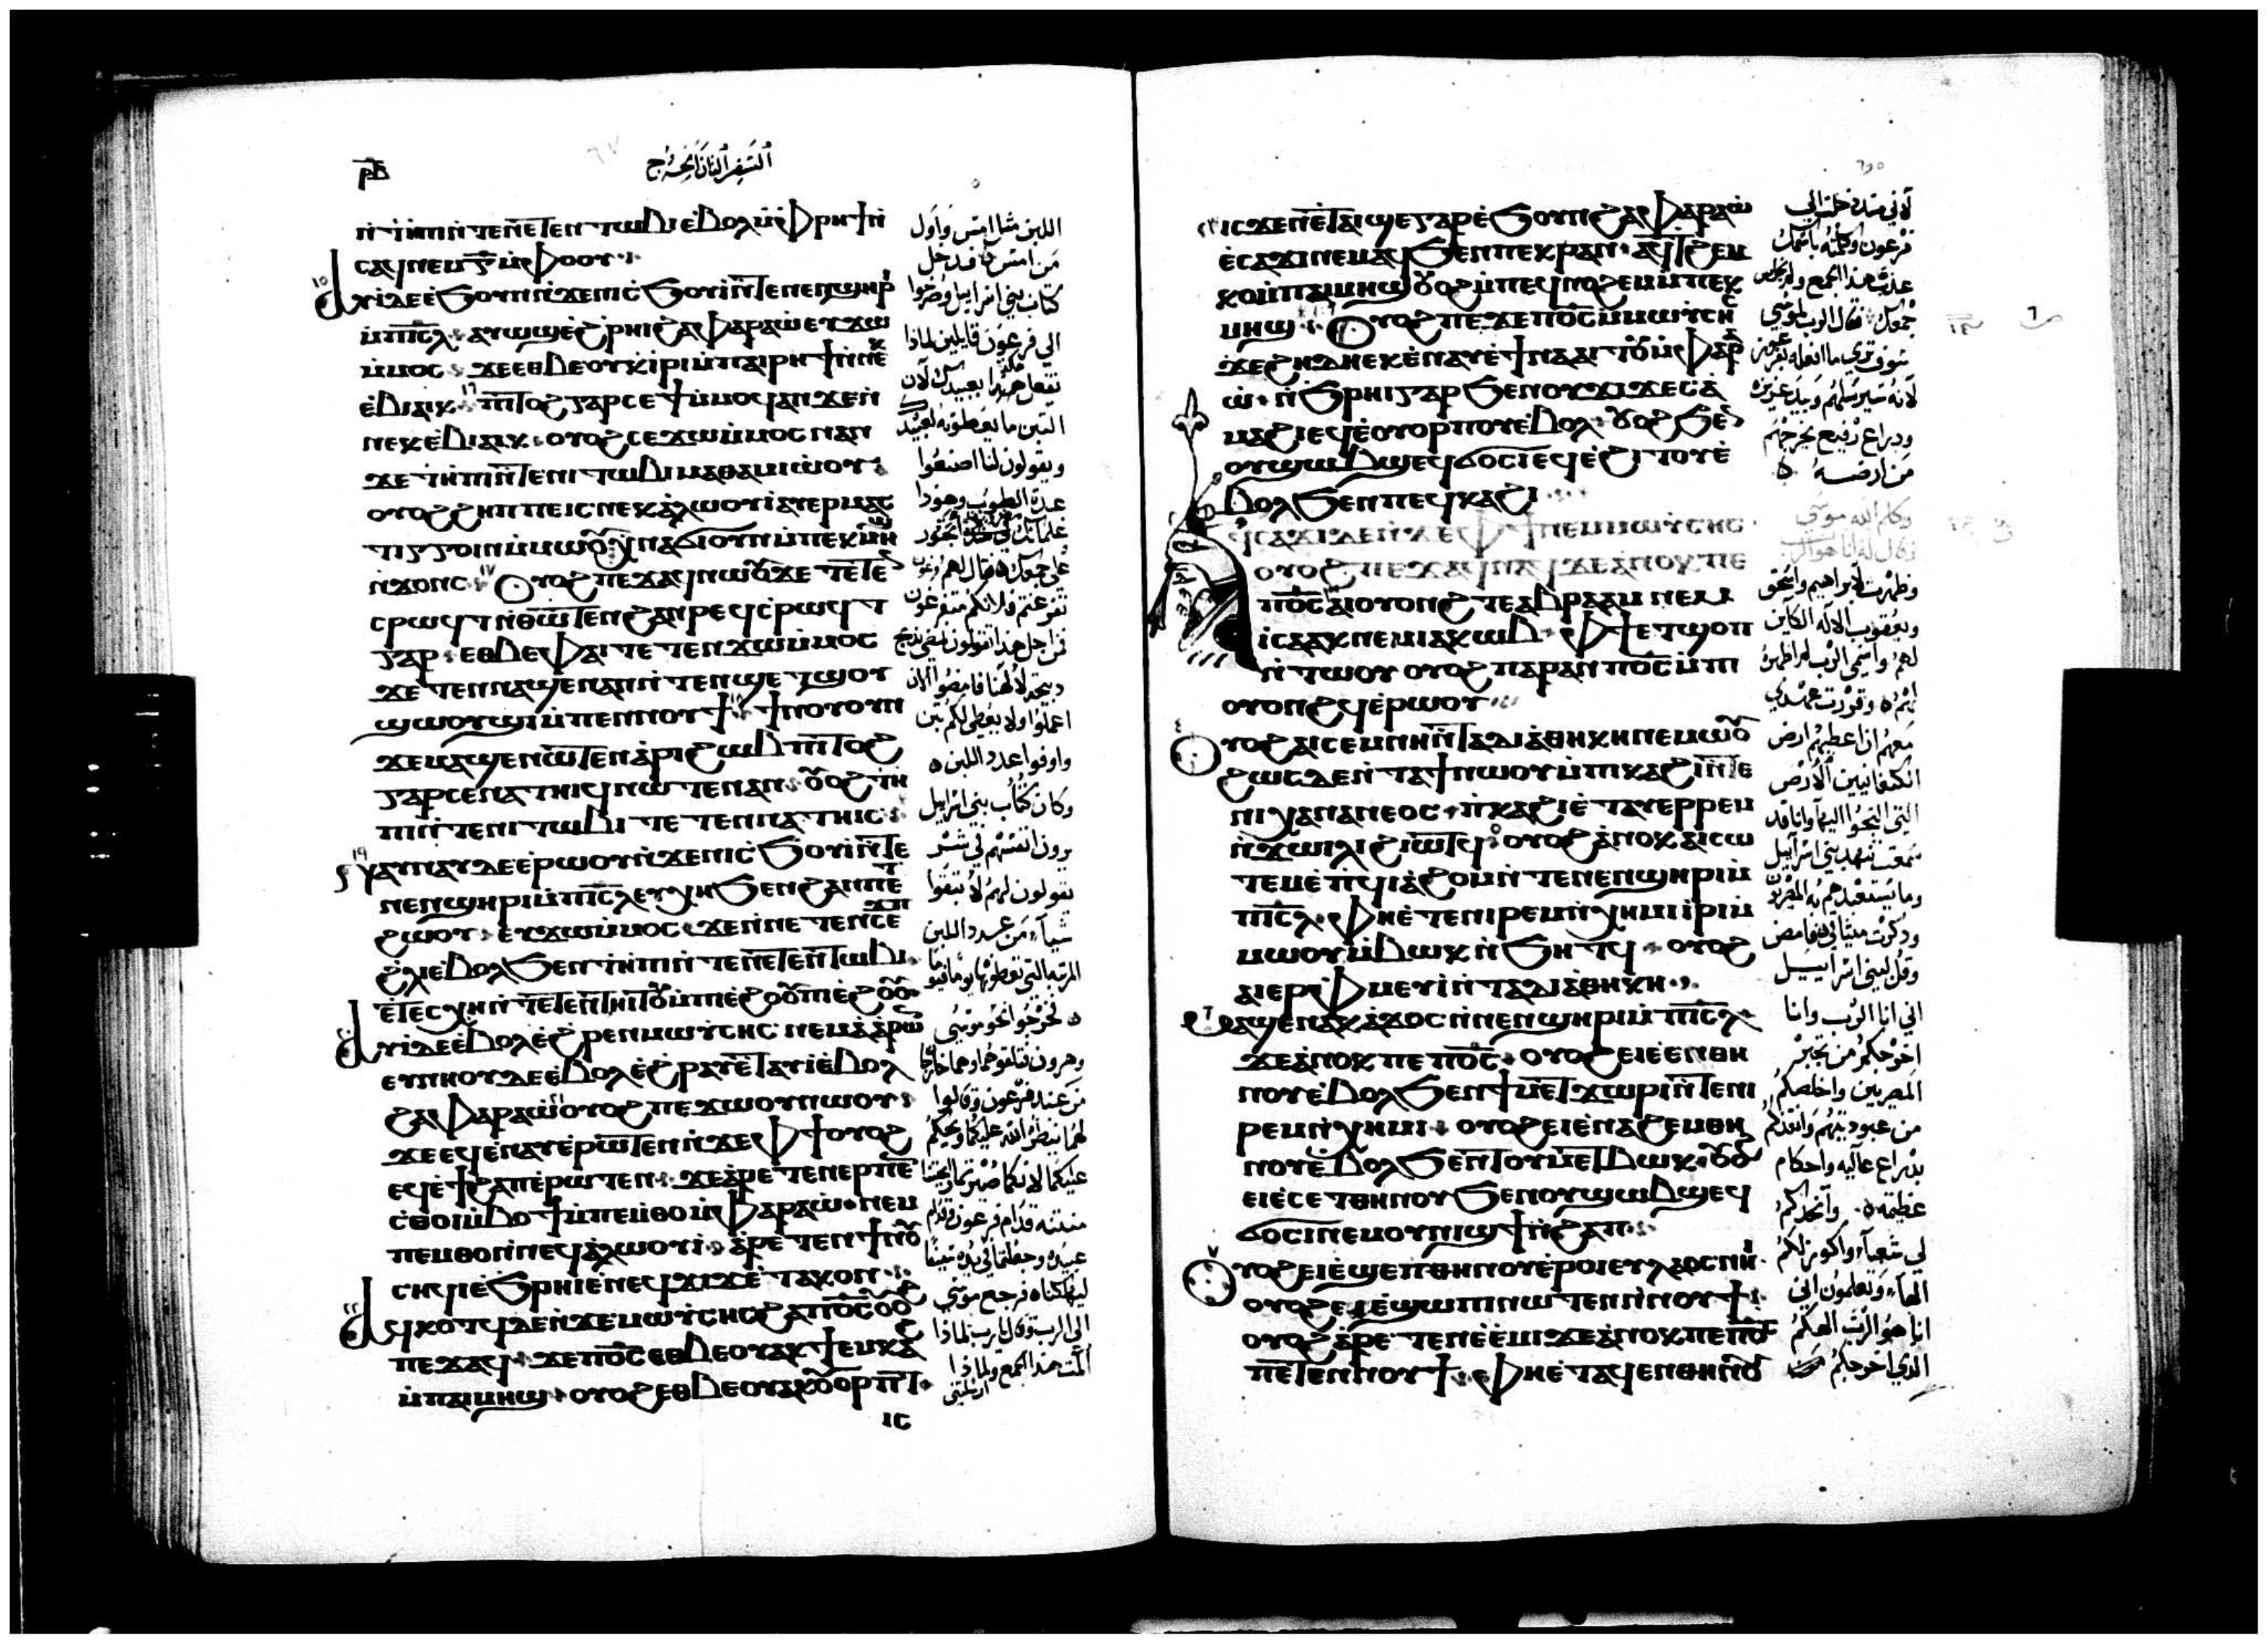 ⲣ̅ⲃ̅
السفر الثاني الخروج
ⲛ̀ϯⲏⲡⲓ ⲛ̀ⲧⲉⲛⲉⲧⲉⲛⲧⲱⲃⲓ ⲉ̀ⲃⲟⲗ ⲙ̀ⲫⲣⲏϯ ⲛ̀
ⲥⲁϥ ⲛⲉⲙ ⲅ̅ ⲙ̀ⲫⲟⲟⲩ
ⲁⲩⲓ̀ ⲇⲉ ⲉ̀ϧⲟⲩⲛ ⲛ̀ϫⲉ ⲛⲓⲥϧⲟⲩⲓ̀ ⲛ̀ⲧⲉ ⲛⲉⲛϣⲏⲣⲓ
ⲙ̀ⲡⲓⲥ̅ⲗ̅ ⲁⲩⲱϣ ⲉ̀ϩ̀ⲣⲏⲓ ϩⲁ ⲫⲁⲣⲁⲱ̀ ⲉⲩϫⲱ
ⲙ̀ⲙⲟⲥ ϫⲉ ⲉⲑⲃⲉⲟⲩ ⲕ̀ⲓⲣⲓ ⲙ̀ⲡⲁⲓⲣⲏϯ ⲛ̀ⲛⲉⲕ
ⲉ̀ⲃⲓⲁⲓⲕ ⲡⲓⲧⲟϩ ⲅⲁⲣ ⲥⲉϯ ⲙ̀ⲙⲟϥ ⲁⲛ ϫⲉⲛ
ⲛⲉⲕⲉ̀ⲃⲓⲁⲓⲕ ⲟⲩⲟϩ ⲥⲉϫⲱ ⲙ̀ⲙⲟⲥ ⲛⲁⲛ
ϫⲉ ϯⲏⲡⲓ ⲛ̀ⲧⲉ ⲛⲓⲧⲱⲃⲓ ⲙⲁⲑⲁⲙⲓⲱⲟⲩ
ⲟⲩⲟϩ ϩⲏⲡⲡⲉ ⲓⲥ ⲛⲉⲕⲁ̀ⲗⲱⲟⲩⲓ̀ ⲁⲩⲉⲣⲙⲁⲥ
ⲧⲓⲅⲅⲟⲓⲛ ⲙ̀ⲙⲱⲟⲩ ⲭⲛⲁϭⲓ ⲟⲩⲛ ⲙ̀ⲡⲉⲕⲙⲏϣ
ⲛ̀ϫⲟⲛⲥ ⲟⲩⲟϩ ⲡⲉϫⲁϥ ⲛⲱⲟⲩ ϫⲉ ⲧⲉⲧⲉⲛ
ⲥⲣⲱϥⲧ ⲛ̀ⲑⲱⲧⲉⲛ ϩⲁⲛⲣⲉϥⲥ̀ⲣⲱϥⲧ
ⲅⲁⲣ ⲉⲑⲃⲉ ⲫⲁⲓ ⲧⲉⲧⲉⲛϫⲱ ⲙ̀ⲙⲟⲥ
ϫⲉ ⲧⲉⲛⲛⲁϣⲉⲛⲁⲛ ⲛ̀ⲧⲉⲛϣⲉⲧϣⲟⲩ
ϣⲱⲟⲩϣⲓ ⲙ̀ⲡⲉⲛⲛⲟⲩϯ ϯⲛⲟⲩ ⲟⲩⲛ
ϫⲉ ⲙⲁϣⲉⲛⲱⲧⲉⲛ ⲁ̀ⲣⲓϩⲱⲃ ⲡⲓⲧⲟϩ
ⲅⲁⲣ ⲥⲉⲛⲁⲧⲏⲓϥ ⲛⲱⲧⲉⲛ ⲁⲛ ⲟⲩⲟϩ ϯⲏ
ⲡⲓ ⲛ̀ⲧⲉ ⲛⲓⲧⲱⲃⲓ ⲧⲉⲧⲉⲛⲛⲁⲧⲏⲓⲥ
ⲛⲁⲩⲛⲁⲩ ⲇⲉ ⲉ̀ⲣⲱⲟⲩ ⲛ̀ϫⲉ ⲛⲓⲥϧⲟⲩⲓ̀ ⲛ̀ⲧⲉ
ⲛⲉⲛϣⲏⲣⲓ ⲙ̀ⲡⲓⲥ̅ⲗ̅ ⲉⲩⲭⲏ ϧⲉⲛ ϩⲁⲛⲡⲉⲧ
ϩⲱⲟⲩ ⲉⲩϫⲱ ⲙ̀ⲙⲟⲥ ϫⲉ ⲛ̀ⲛⲉⲧⲉⲛⲥⲉϫⲡ
ϩ̀ⲗⲓ ⲉ̀ⲃⲟⲗ ϧⲉⲛ ϯⲏⲡⲓ ⲛ̀ⲧⲉ ⲛⲉⲧⲉⲛⲧⲱⲃⲓ
ⲉ̀ⲧⲉⲥⲭⲏ ⲛ̀ⲧⲉⲧⲉⲛⲧⲏⲓⲧⲟⲩ ⲙ̀ⲡⲉ̀ϩⲟⲟⲩ ⲡⲉ̀ϩⲟⲟⲩ
ⲁⲩⲓ̀ ⲇⲉ ⲉ̀ⲃⲟⲗ ⲉ̀ϩⲣⲉⲛ ⲙⲱⲩ̀ⲥⲏⲥ ⲛⲉⲙ ⲁ̀ⲁⲣⲱⲛ
ⲉⲩⲛⲏⲟⲩ ⲇⲉ ⲉ̀ⲃⲟⲗ ⲉ̀ϩⲣⲁⲩ ⲉ̀ⲧⲁⲩⲓ̀ ⲉ̀ⲃⲟⲗ
ϩⲁ ⲫⲁⲣⲁⲱ̀ ⲟⲩⲟϩ ⲡⲉϫⲱⲟⲩ ⲛⲱⲟⲩ
ϫⲉ ⲉϥⲉ̀ⲛⲁⲩ ⲉ̀ⲣⲱⲧⲉⲛ ⲛ̀ϫⲉ ⲫϯ ⲟⲩⲟϩ
ⲉϥⲉ̀ϯϩⲁⲡ ⲉ̀ⲣⲱⲧⲉⲛ ϫⲉ ⲁ̀ⲣⲉⲧⲉⲛⲉⲣⲡⲉⲛ
ⲥ̀ⲑⲟⲓ ⲙ̀ⲃⲟϯ ⲙ̀ⲡⲉⲙ̀ⲑⲟ ⲙ̀ⲫⲁⲣⲁⲱ̀ ⲛⲉⲙ
ⲡⲉⲙⲑⲟ ⲛ̀ⲛⲉϥⲁ̀ⲗⲱⲟⲩⲓ̀ ⲁ̀ⲣⲉⲧⲉⲛϯ ⲛ̀ⲟⲩ
ⲥⲏϥⲓ ⲉ̀ϧⲣⲏⲓ ⲉ̀ⲛⲉϥϫⲓϫ ⲉ̀ⲧⲁⲕⲟⲛ
ⲁϥⲕⲟⲧϥ ⲇⲉ ⲛ̀ϫⲉ ⲙⲱⲩ̀ⲥⲏⲥ ϩⲁ ⲡⲟ̅ⲥ̅ ⲟⲩⲟϩ
ⲡⲉϫⲁϥ ϫⲉ ⲡⲟ̅ⲥ̅ ⲉⲑⲃⲉⲟⲩ ⲁⲕϯⲉⲙⲕⲁϩ
ⲙ̀ⲡⲁⲓⲙⲏϣ ⲟⲩⲟϩ ⲉⲑⲃⲉⲟⲩ ⲁⲕⲟⲩⲟⲣⲡⲧ
ⲓⲥ
اللبن مثل امس واول
من امس
كتاب بني اسرايل وضرخوا
الي فرعون قايلين لماذا
تفعل هكذا بعبيدك لان
التبن ما يعطونه لعبيدك
ويقولون لنا اصنعوا
عدة الطوب وهوذا
من اجل هذا تقولون نمضي نذبح
ذبيحة لالهنا فامضوا الان
اعملوا ولا يعطي لكم تبن
واوفوا عدد اللبن
وكان كتاب بني اسرايل
يرون انفسهم في شر
يقولون لهم لا تبقوا
شيا من عدد اللبن
فخرجوا نحو موسي
من عند فرعون وقالوا
لهما ينظر الله عليكما ويحكم
منتنه قدام فرعون وقدام
عبيده وجعلتما في يده سيفا
ليهلكناه فرجع موسي
الي الرب وقال يارب لماذا
المت هذا الجمع ولماذا
ارسلتني
ⲓⲥϫⲉⲛ ⲉ̀ⲧⲁⲓϣⲉ ⲅⲁⲣ ⲉ̀ϧⲟⲩⲛ ϩⲁ ⲫⲁⲣⲁⲱ̀
ⲉ̀ⲥⲁϫⲓ ⲛⲉⲙⲁϥ ϧⲉⲛ ⲡⲉⲕⲣⲁⲛ ⲁϥϯϩⲉⲙ
ⲕⲟ ⲙ̀ⲡⲁⲓⲙⲏϣ ⲟⲩⲟϩ ⲙ̀ⲡⲉϥⲛⲟϩⲉⲙ ⲙ̀ⲡⲉⲕ
ⲙⲏϣ ⲟⲩⲟϩ ⲡⲉϫⲉ ⲡⲟ̅ⲥ̅ ⲙ̀ⲙⲱⲩ̀ⲥⲏⲥ
ϫⲉ ϩⲏⲇⲏ ⲉⲕⲉ̀ⲛⲁⲩ ⲉ̀ϯⲛⲁⲁⲓⲧⲟⲩ ⲙ̀ⲫⲁⲣⲁ
ⲱ̀ ⲛ̀ϧⲣⲏⲓ ⲅⲁⲣ ϧⲉⲛ ⲟⲩϫⲓϫ ⲉⲥⲁ̀
ⲙⲁϩⲓ ⲉϥⲉ̀ⲟⲩⲟⲣⲡⲟⲩ ⲉ̀ⲃⲟⲗ ⲟⲩⲟϩ ϧⲉⲛ
ⲟⲩϣⲱⲃϣ ⲉϥϭⲟⲥⲓ ⲉϥⲉ̀ϩⲓⲧⲟⲩ ⲉ̀
ⲃⲟⲗ ϧⲉⲛ ⲡⲉϥⲕⲁϩⲓ
ⲁϥⲥⲁϫⲓ ⲇⲉ ⲛ̀ϫⲉ ⲫϯ ⲛⲉⲙ ⲙⲱⲩ̀ⲥⲏⲥ
ⲟⲩⲟϩ ⲡⲉϫⲁϥ ⲛⲁϥ ϫⲉ ⲁ̀ⲛⲟⲕ ⲡⲉ
ⲡⲟ̅ⲥ̅ ⲁⲓⲟⲩⲟⲛϩⲧ ⲉⲁⲃⲣⲁⲁⲙ ⲛⲉⲙ
ⲓ̀ⲥⲁⲁⲕ ⲛⲉⲙ ⲓⲁⲕⲱⲃ ⲫϯ ⲉⲧϣⲟⲡ
ⲛ̀ⲧⲱⲟⲩ ⲟⲩⲟϩ ⲡⲁⲣⲁⲛ ⲡⲟ̅ⲥ̅ ⲙ̀ⲡⲓ
ⲟⲩⲟⲛϩϥ ⲉ̀ⲣⲱⲟⲩ
ⲟⲩⲟϩ ⲁⲓⲥⲉⲙⲛⲏ ⲛ̀ⲧⲁⲇⲓⲁⲑⲏⲕⲏ ⲛⲉⲙⲱⲟⲩ
ϩⲱⲥⲇⲉ ⲛ̀ⲧⲁϯ ⲛⲱⲟⲩ ⲙ̀ⲡⲕⲁϩⲓ ⲛ̀ⲧⲉ
ⲛⲓⲭⲁⲛⲁⲛⲉⲟⲥ ⲡ̀ⲕⲁϩⲓ ⲉ̀ⲧⲁⲩⲉⲣⲣⲉⲙ
ⲛ̀ϫⲱⲓⲗⲓ ϩⲓⲱⲧϥ ⲟⲩⲟϩ ⲁ̀ⲛⲟⲕ ⲁⲓⲥⲱ
ⲧⲉⲙ ⲉ̀ⲡ̀ϥⲓⲁ̀ϩⲟⲙ ⲛ̀ⲧⲉ ⲛⲉⲛϣⲏⲣⲓ ⲙ̀
ⲡⲓⲥ̅ⲗ̅ ⲫⲏ ⲉ̀ⲧⲉ ⲛⲓⲣⲉⲙⲛ̀ⲭⲏⲙⲓ ⲓ̀ⲣⲓ ⲙ̀
ⲙⲱⲟⲩ ⲙ̀ⲃⲱⲕ ⲛ̀ϧⲏⲧϥ ⲟⲩⲟϩ
ⲁⲓⲉⲣⲫⲙⲉⲩⲓ̀ ⲛ̀ⲧⲁⲇⲓⲁⲑⲏⲕⲏ
ⲙⲁϣⲉⲛⲁⲕ ⲁ̀ϫⲟⲥ ⲛ̀ⲛⲉⲛϣⲏⲣⲓ ⲙ̀ⲡⲓⲥ̅ⲗ̅
ϫⲉ ⲁ̀ⲛⲟⲕ ⲡⲉ ⲡⲟ̅ⲥ̅ ⲟⲩⲟϩ ⲉⲓⲉ̀ⲉⲛ ⲑⲏ
ⲛⲟⲩ ⲉ̀ⲃⲟⲗ ϧⲉⲛ ϯⲙⲉⲧϫⲱⲣⲓ ⲛ̀ⲧⲉ ⲛⲓ
ⲣⲉⲙⲛ̀ⲭⲏⲙⲓ ⲟⲩⲟϩ ⲉⲓⲉ̀ⲛⲁϩⲉⲙ ⲑⲏ
ⲛⲟⲩ ⲉ̀ⲃⲟⲗ ϧⲉⲛ ⲧⲟⲩⲙⲉⲧⲃⲱⲕ ⲟⲩⲟϩ
ⲉⲓⲉ̀ⲥⲉⲧ ⲑⲏⲛⲟⲩ ϧⲉⲛ ⲟⲩϣⲱⲃϣ ⲉϥ
ϭⲟⲥⲓ ⲛⲉⲙ ⲟⲩⲛⲓϣϯ ⲛ̀ϩⲁⲡ
ⲟⲩⲟϩ ⲉⲓⲉ̀ϣⲉⲡ ⲑⲏⲛⲟⲩ ⲉ̀ⲣⲟⲓ ⲉⲩⲗⲁⲟⲥ ⲛⲏⲓ
ⲟⲩⲟϩ ⲉⲓⲉ̀ϣⲱⲡⲓ ⲛⲱⲧⲉⲛ ⲛ̀ⲛⲟⲩϯ
ⲟⲩⲟϩ ⲁ̀ⲣⲉⲧⲉⲛⲉ̀ⲉ̀ⲙⲓ ϫⲉ ⲁ̀ⲛⲟⲕ ⲡⲉ ⲡⲟ̅ⲥ̅
ⲡⲉⲧⲉⲛⲛⲟⲩϯ ⲫⲏ ⲉ̀ⲧⲁϥⲉⲛ ⲑⲏⲛⲟⲩ
لاني منذ دخلت الي
فرعون وكلمته باسمك
عذب هذا الجمع ولم يخلص
جمعك فقال الرب لموسي
سوف تري ما افعله بفرعون
ودراع رفيع يخرجهم
من ارضه
وكلم الله موسي
فقال له انا هو الرب
وظهرت لابراهيم واسحق
ويعقوب الاله الكاين
لهم واسمي الرب لم اظهره
لهم وقررت عهدي
معهم ان اعطيهم ارض
الكنعانيين الارض
التي التجوا اليها وانا قد
سمعت تنهد بني اسراييل
وما يستعبدهم به المصريون
وذكرت ميثاقي فامض
وقل لبني اسراييل
اني انا الرب وانا
اخرجكم من تجبر
المصريين واخلصكم
من عبوديتهم وانقذكم
بدراع عاليه واحكام
عظيمه واتخذكم
لي شعبا واكون لكم
الها وتعلمون اني
انا هو الرب الهكم
الذي اخرجكم